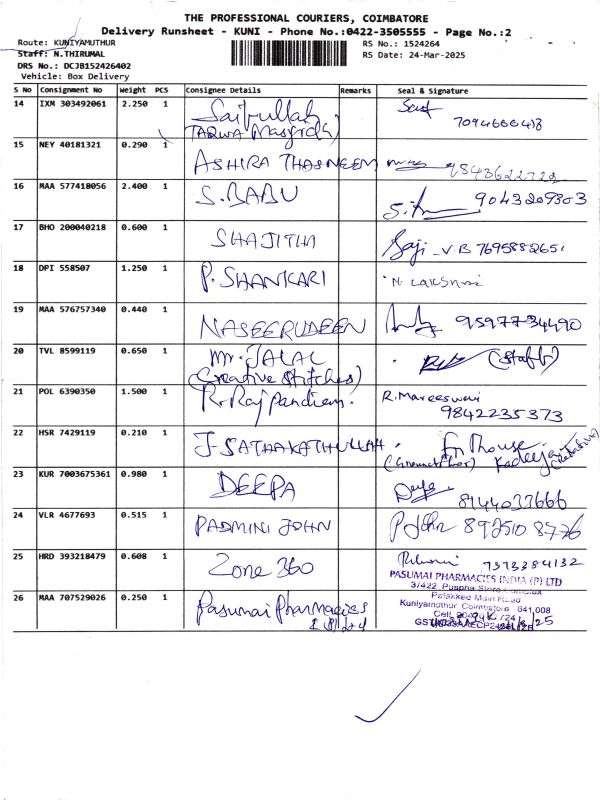 THE PROFESSIONAL COURIERS, COIMBATORE
Delivery Runsheet - KUNI - Phone No.:0422-3505555 - Page No.:2
Route: KUNIYAMUTHUR
RS No.: 1524264
Staff: N.THIRUMAL
RS Date: 24-Mar-2025
DRS No.: DCJB152426402
Vehicle: Box Delivery
S No Consignment No Weight PCS Consignee Details Remarks Seal & Signature
14 IXM 303492061 2.250 1 Saifullah
(TAQWA Masjid)
15 NEY 40181321 0.290 1 ASHIRA THASNEEM 9843622722
16 MAA 577418056 2.400 1 S.BABU 9043209303
17 BHO 200040218 0.600 1 SHAJITHA Saji - V.B 7695882651
18 DPI 558507 1.250 1 P. SHANKARI N. LAKSHMI
19 MAA 576757340 0.440 1 NASEERUDEEN 9597734490
20 TVL 8599119 0.650 1 Mr. JALAL (Staff)
(Creative Stitches)
21 POL 6390350 1.500 1 R. Raj pandian. R.Mareeswari
9842235373
22 HSR 7429119 0.210 1 J-SATHAKATHULLAH.
23 KUR 7003675361 0.980 1 DEEPA 8144033666
24 VLR 4677693 0.515 1 PADMINI JOHN P John 892510 8776
25 HRD 393218479 0.608 1 Zone 360 7373384132
26 MAA 707529026 0.250 1 Pasumai Pharmacies
PASUMAI PHARMACIES INDIA (P) LTD
37/422, Puspha Store Complex
Palakkad Main Road
Kuniyamuthur Coimbatore 641 008